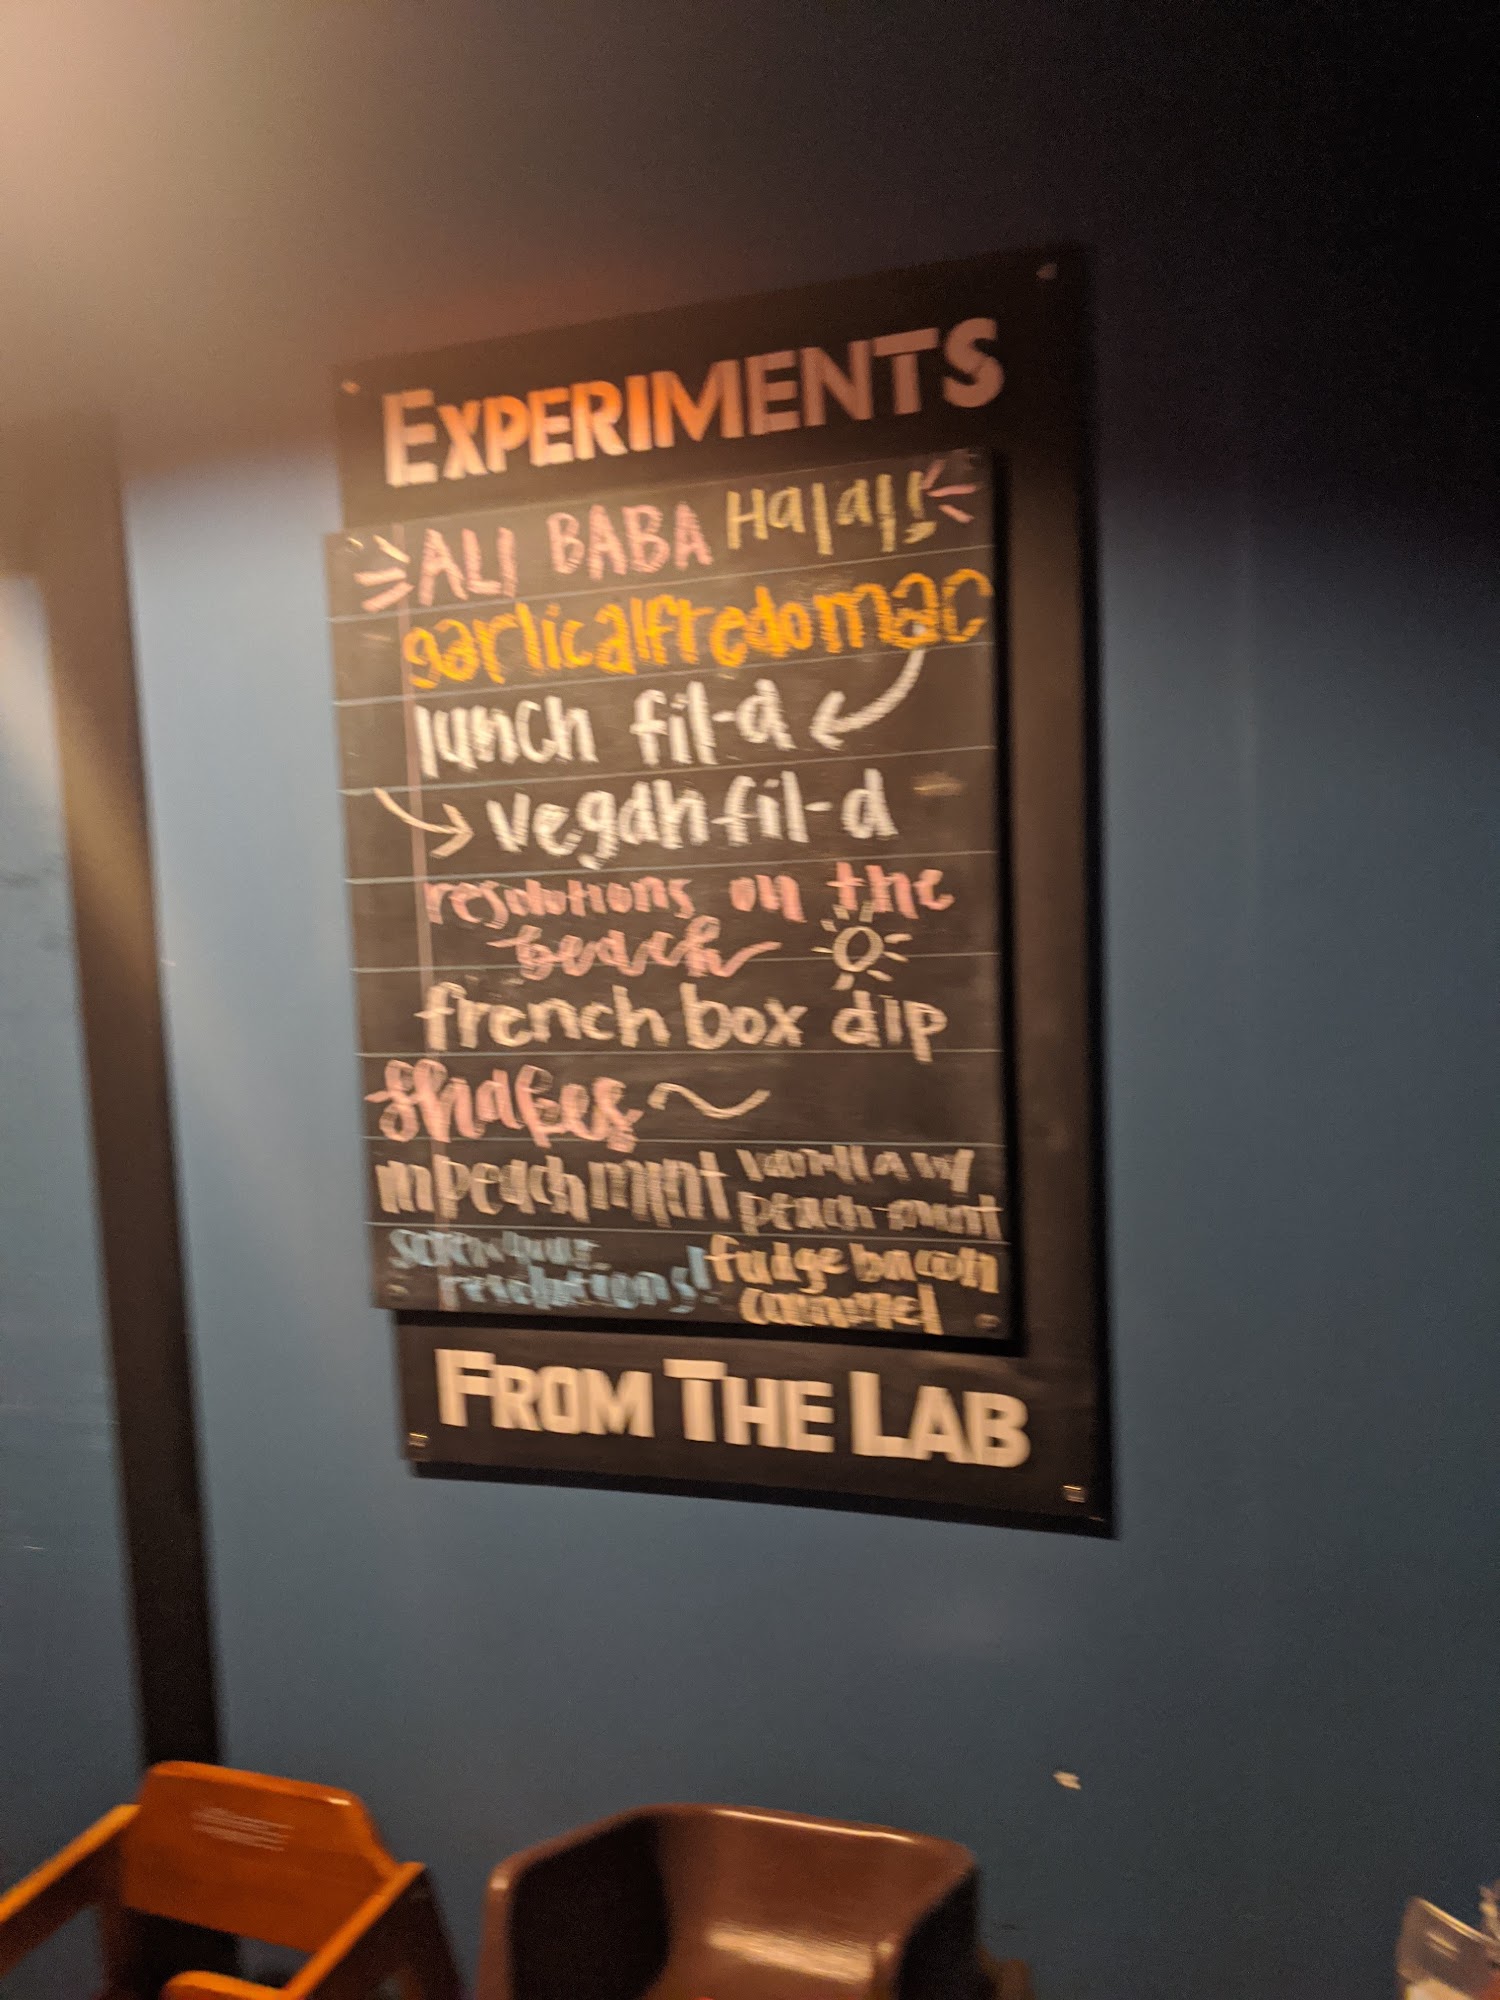 EXPERIMENTS
ALI BABA Halal!
garlic alfredo mac
lunch fil-d
vegan fil-d
resolutions on the
beach
french box dip
shakes
mpeachmint vanilla w/
peach-mint
screw your
resolutions! fudge bacon
caramel
FROM THE LAB